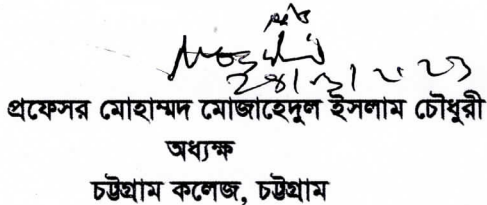 প্রফেসর মোহাম্মদ মোজাহেদুল ইসলাম চৌধুরী
অধ্যক্ষ
চট্টগ্রাম কলেজ, চট্টগ্রাম